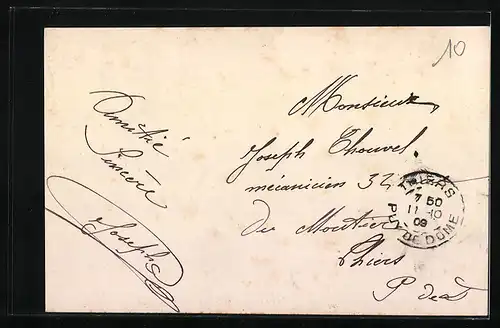 10
Amitié
Sincère
Joseph
Monsieur
Joseph Thouvel
mécanicien 32
du Moutier
Thiers
P de D
THIERS
7 50
11 - 10
09
PUY-DE-DOME